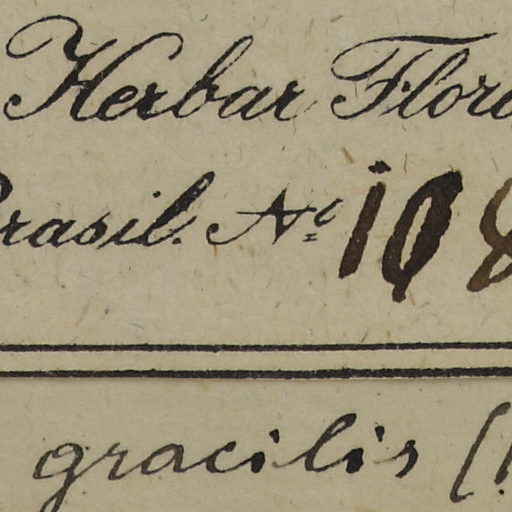 Herbar Flora
Brasil. No 108
gracilis (